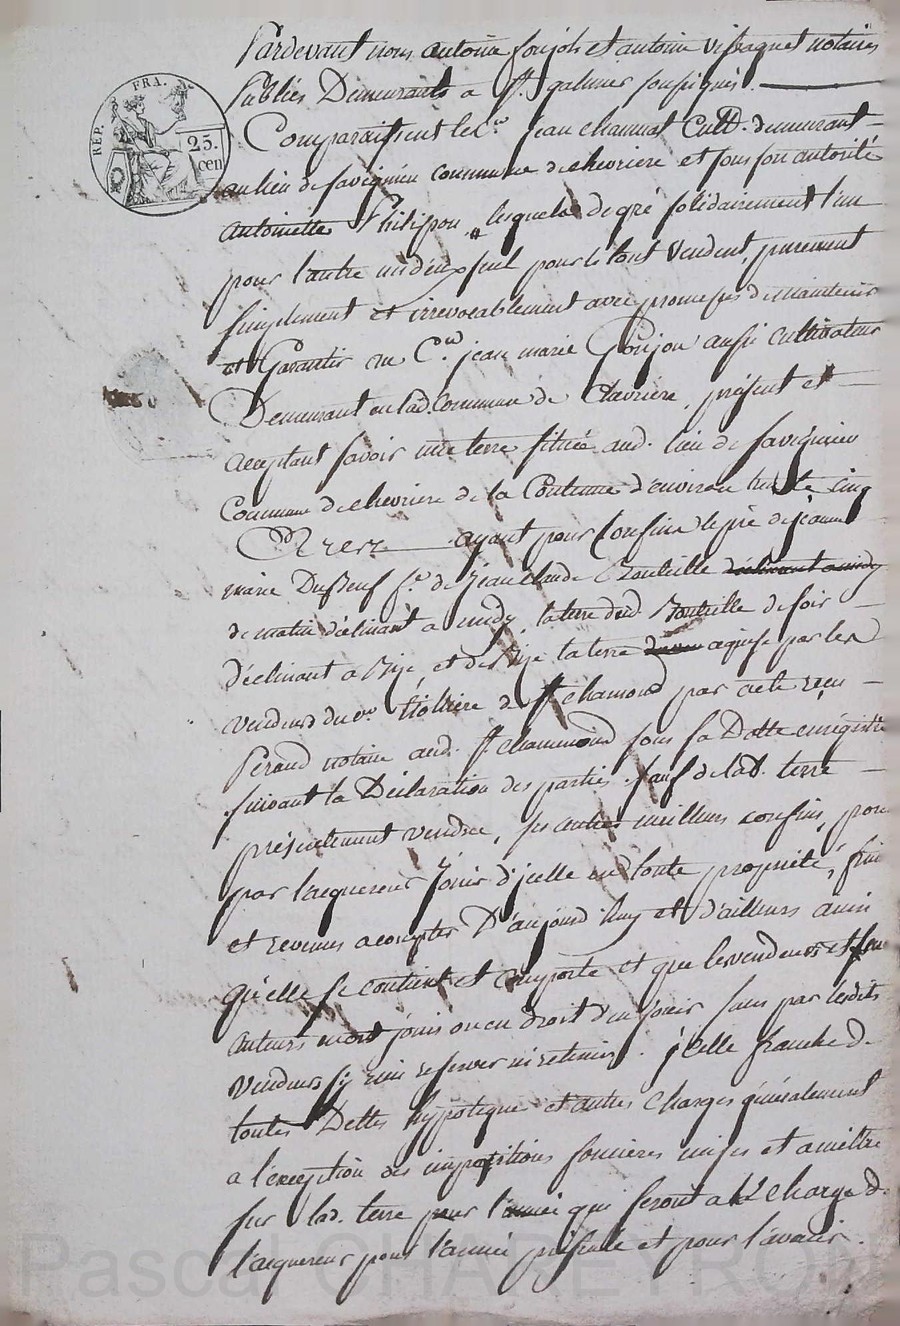 REP. FRA.
25.
cen
Pardevant nous antoine et antoine notaires
Publics Demeurants a St. galmier soussignés.
Comparaissent le Cn. jean chammat Cultr. demeurant
au lieu de savignieu commune de chevriere et sous son autorité
antoinette Philipon, lesquels de gré solidairement l'un
pour l'autre un deux seul pour le tout Vendent, purement
simplement et irrevocablement avec promesses de maintenir
et Garantir au Cn. jean marie Goujon aussi cultivateur
Demeurant en lad. Commune de Chevriere, présent et
acceptant savoir une terre située aud. lieu de savignieu
Commune de chevriere de la Contenue d'environ trente cinq
ayant pour Confins le pré de jeanne
marie Dubeuf fe. de jean claude Bouteille
de matin déclinant a midy, la terre dud. Bouteille de soir
déclinant a Bize, et de Bize la terre aquise par les
vendeurs du Cn. de St. chamond par acte reçu
Peraud notaire aud. St. chammond sous sa Datte enrégistré
suivant la Déclaration des parties. sauf de lad. terre
présentement vendue, ses autres meilleurs confins, pour
par l'acquereur Jouir d'jcelle en toute proprieté,
et revenus a compter D'aujourd'huy et d'ailleurs ainsi
qu'elle se contient et comporte et que les vendeurs et
auteurs en ont jouis ou eu droit d'en jouir sans par lesdits
vendeurs s'y rien reserver ni retenir. jcelle franche de
toutes Dettes hypoteque et autres Charges généralement
a l'exception des impositions foncieres mises et a mettre
sur lad. terre pour l'année qui seront a la charge de
l'acquereur pour l'année présente et pour l'avenir.
Pascal CHAREYRON